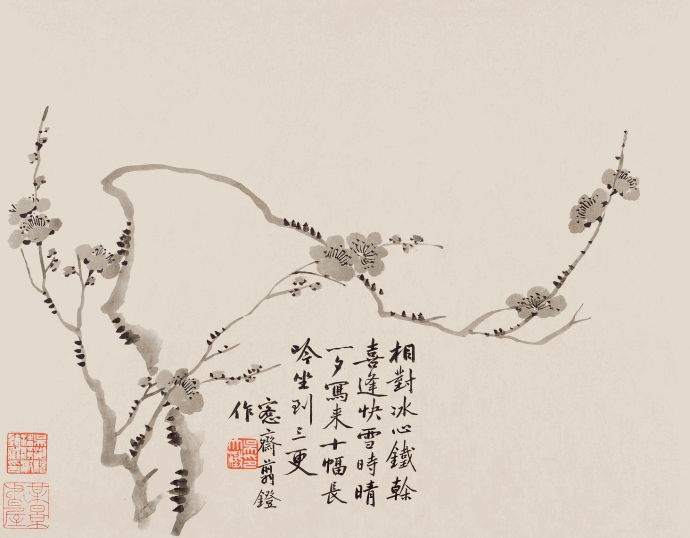 相對冰心鐵榦
喜逢快雪時晴
一夕寫来十幅長
吟坐到三更
窓齋翦鐙
作